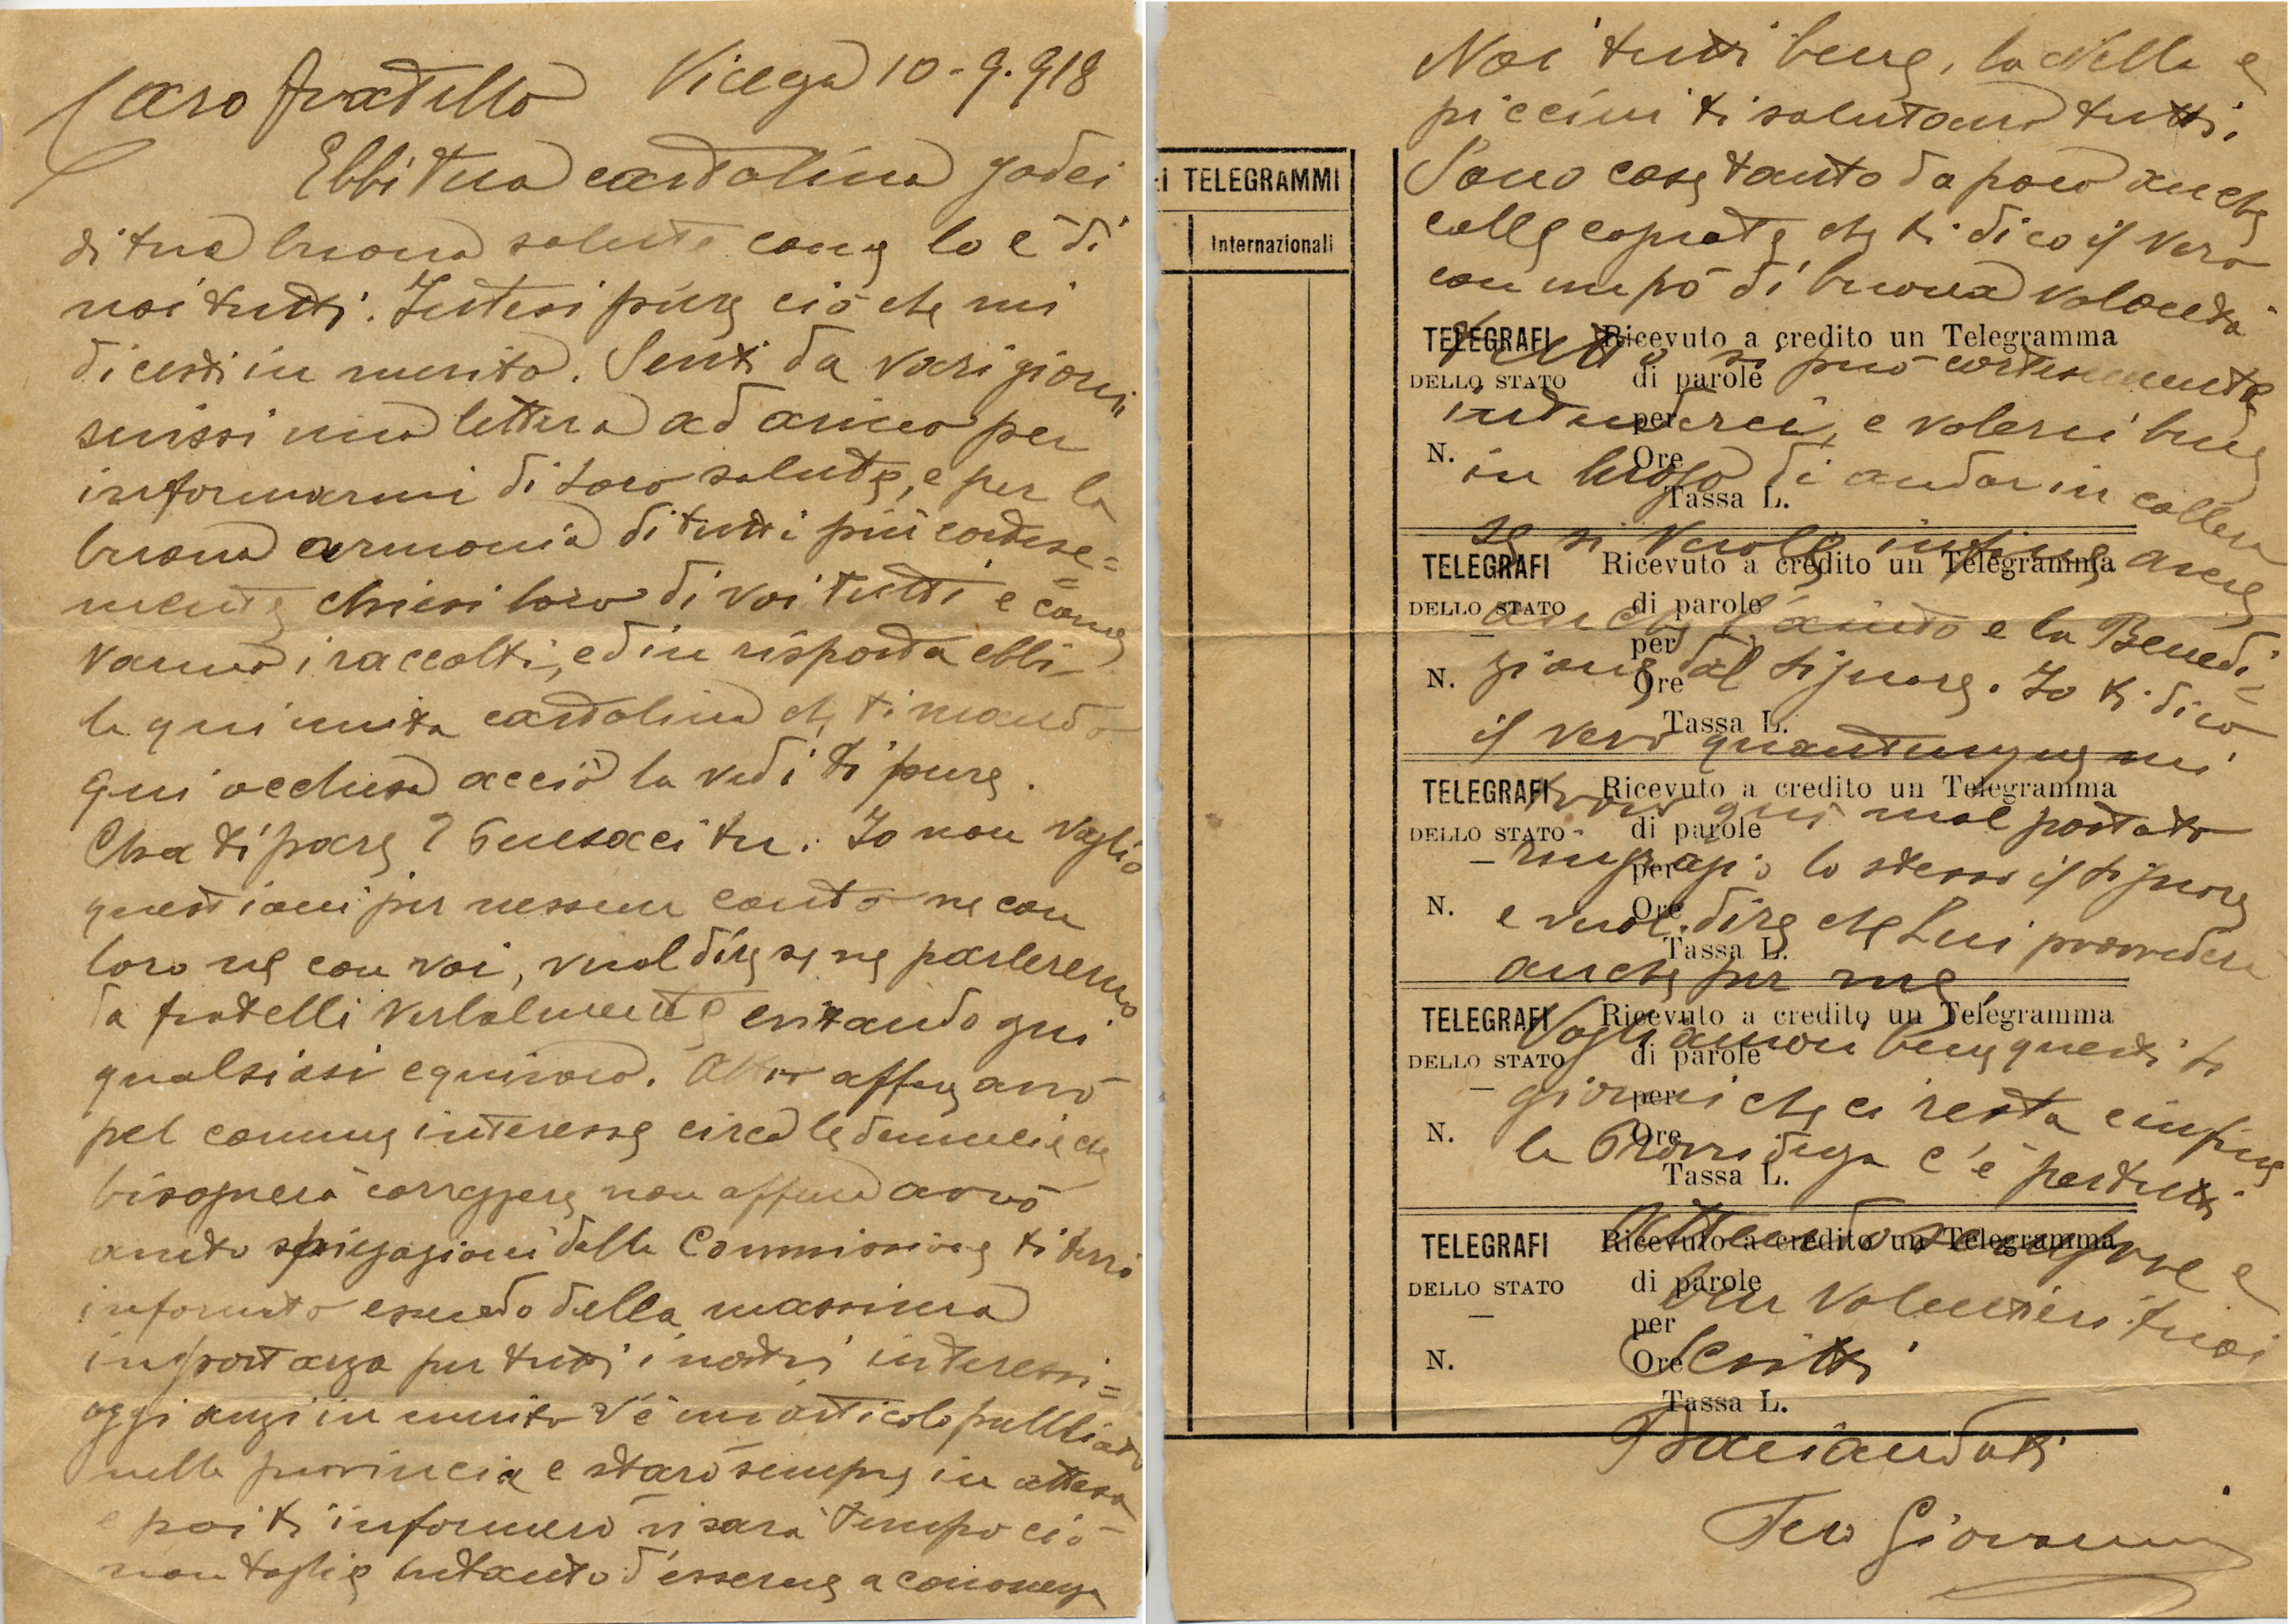 Vicenza 10-9.918
Caro fratello
Ebbi tua cartolina godei
di tua buona salute come lo è di
noi tutti. Intesi pure ciò che mi
dicesti in merito. Senti da vari giorni
scrissi una lettera ad amico per
informarmi di loro salute, e per la
buona armonia di tutti più cortese=
mente chiesi loro di voi tutti e come
vanno i raccolti, ed in risposta ebbi
la qui unita cartolina che ti mando
qui occlusa acciò la vedi ti pure.
Cha ti pare? Pensaci tu. Io non voglio
questioni per nessun conto ne con
loro ne con voi, vuol dire se ne parleremo
da fratelli verbalmente evitando qui
qualsiasi equivoco. Altro appena avrò
pel comune interesse circa le denuncie che
bisognerà correggere non appena avrò
avuto spiegazioni dalla Commissione ti terrò
informato essendo della massima
importanza per tutti i nostri interessi=
oggi anzi in merito v'è un articolo pubblicato
nella provincia e starò sempre in attesa
e poi ti informerò vi sarà tempo ciò
non toglie intanto d'esserne a conoscenza
Noi tutti bene, la Nella e
piccini ti salutano tutti.
Sono cose tanto da poco anche
colle che ti dico il vero
con un pò di buona volontà
tutto si può cortesemente
intenderci, e volerci bene
in luogo di andar in collera
se si vuole infine avere
anche l'aiuto e la Benedi=
zione dal Signore. Io ti dico
il vero quantunque mi
trovo qui mal portato
ringrazio lo stesso il Signore
e vuol dire che Lui provvederà
anche per me.
Vogliamoci bene questi ti
giorni che ci resta e infine
la Provvidenza c'è per tutti
Attendo sempre e
ben volentieri tuoi
Scritti
Baciandoti
Tuo Giovanni
EI TELEGRAMMI
Internazionali
TELEGRAFI Ricevuto a credito un Telegramma
DELLO STATO di parole
per
N. Ore
Tassa L.
TELEGRAFI Ricevuto a credito un Telegramma
DELLO STATO di parole
per
N. Ore
Tassa L.
TELEGRAFI Ricevuto a credito un Telegramma
DELLO STATO di parole
per
N. Ore
Tassa L.
TELEGRAFI Ricevuto a credito un Telegramma
DELLO STATO di parole
per
N. Ore
Tassa L.
TELEGRAFI Ricevuto a credito un Telegramma
DELLO STATO di parole
per
N. Ore
Tassa L.